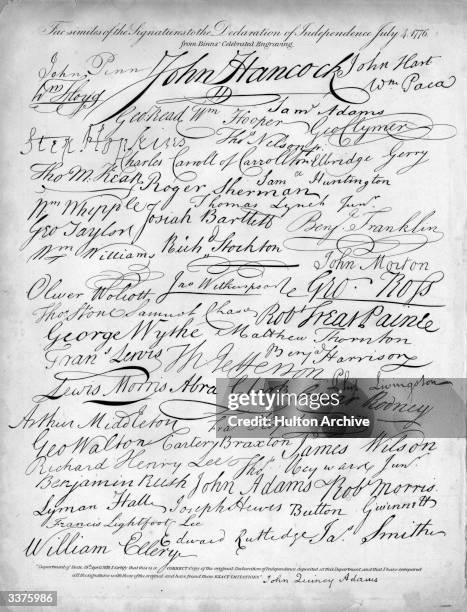 Fac similes of the Signatures to the Declaration of Independence July 4. 1776.
from Binns' Celebrated Engraving.
John Penn John Hancock John Hart
Wm Floyd Wm Paca
Geo Read Wm Hooper Saml Adams
Geo Clymer
Step Hopkins Thos Nelson jr.
Charles Carroll of Carrollton Elbridge Gerry
Tho M:Kean Roger Sherman Saml Huntington
Wm Whipple Thomas Lynch Junr.
Josiah Bartlett Benj. Franklin
Geo Taylor
Wm Williams Richd Stockton
John Morton
Oliver Wolcott Jno Witherspoon Geo. Ross
Thos Stone Samuel Chase Robt Treat Paine
George Wythe Matthew Thornton
Frans. Lewis Th Jefferson Benj Harrison
Lewis Morris Abra Clark Phil. Livingston
Cæsar Rodney
Arthur Middleton Fra
Geo Walton Carter Braxton James Wilson
Richard Henry Lee Thos Heyward Junr.
Benjamin Rush John Adams Robt Morris.
Lyman Hall Joseph Hewes Button Gwinnett
Francis Lightfoot Lee
William Ellery Edward Rutledge Jas. Smith
Department of State, 19th April 1819. I certify that this is a CORRECT copy of the original Declaration of Independence deposited at this Department, and that I have compared
all the signatures with those of the original and have found them EXACT IMITATIONS.
John Quincy Adams
gettyimages
Credit: Hulton Archive
3375986